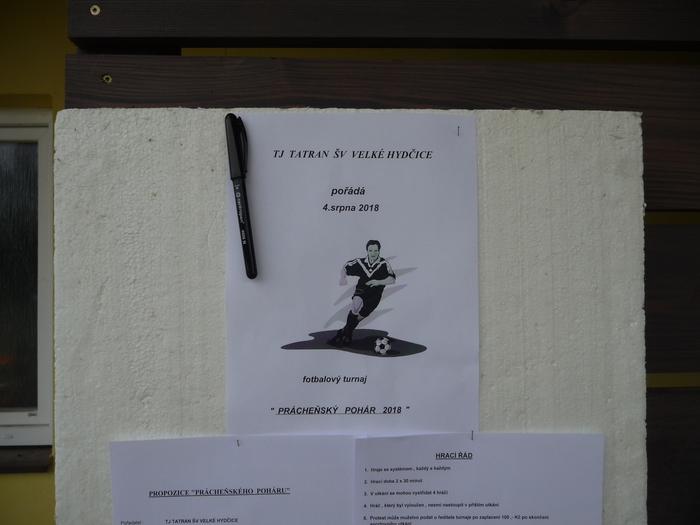 TJ TATRAN ŠV VELKÉ HYDČICE
pořádá
4.srpna 2018
fotbalový turnaj
" PRÁCHEŇSKÝ POHÁR 2018 "
PROPOZICE "PRÁCHEŇSKÉHO POHÁRU"
Pořadatel: TJ TATRAN ŠV VELKÉ HYDČICE
HRACÍ ŘÁD
1. Hraje se systémem , každý s každým
2. Hrací doba 2 x 30 minut
3. V utkání se mohou vystřídat 4 hráči
4. Hráč , který byl vyloučen , nesmí nastoupit v příštím utkání
5. Protest může mužstvo podat u ředitele turnaje po zaplacení 100 ,- Kč po skončení